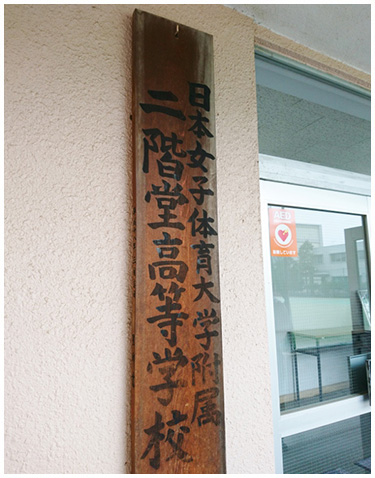 日本女子体育大学附属
二階堂高等学校
AED